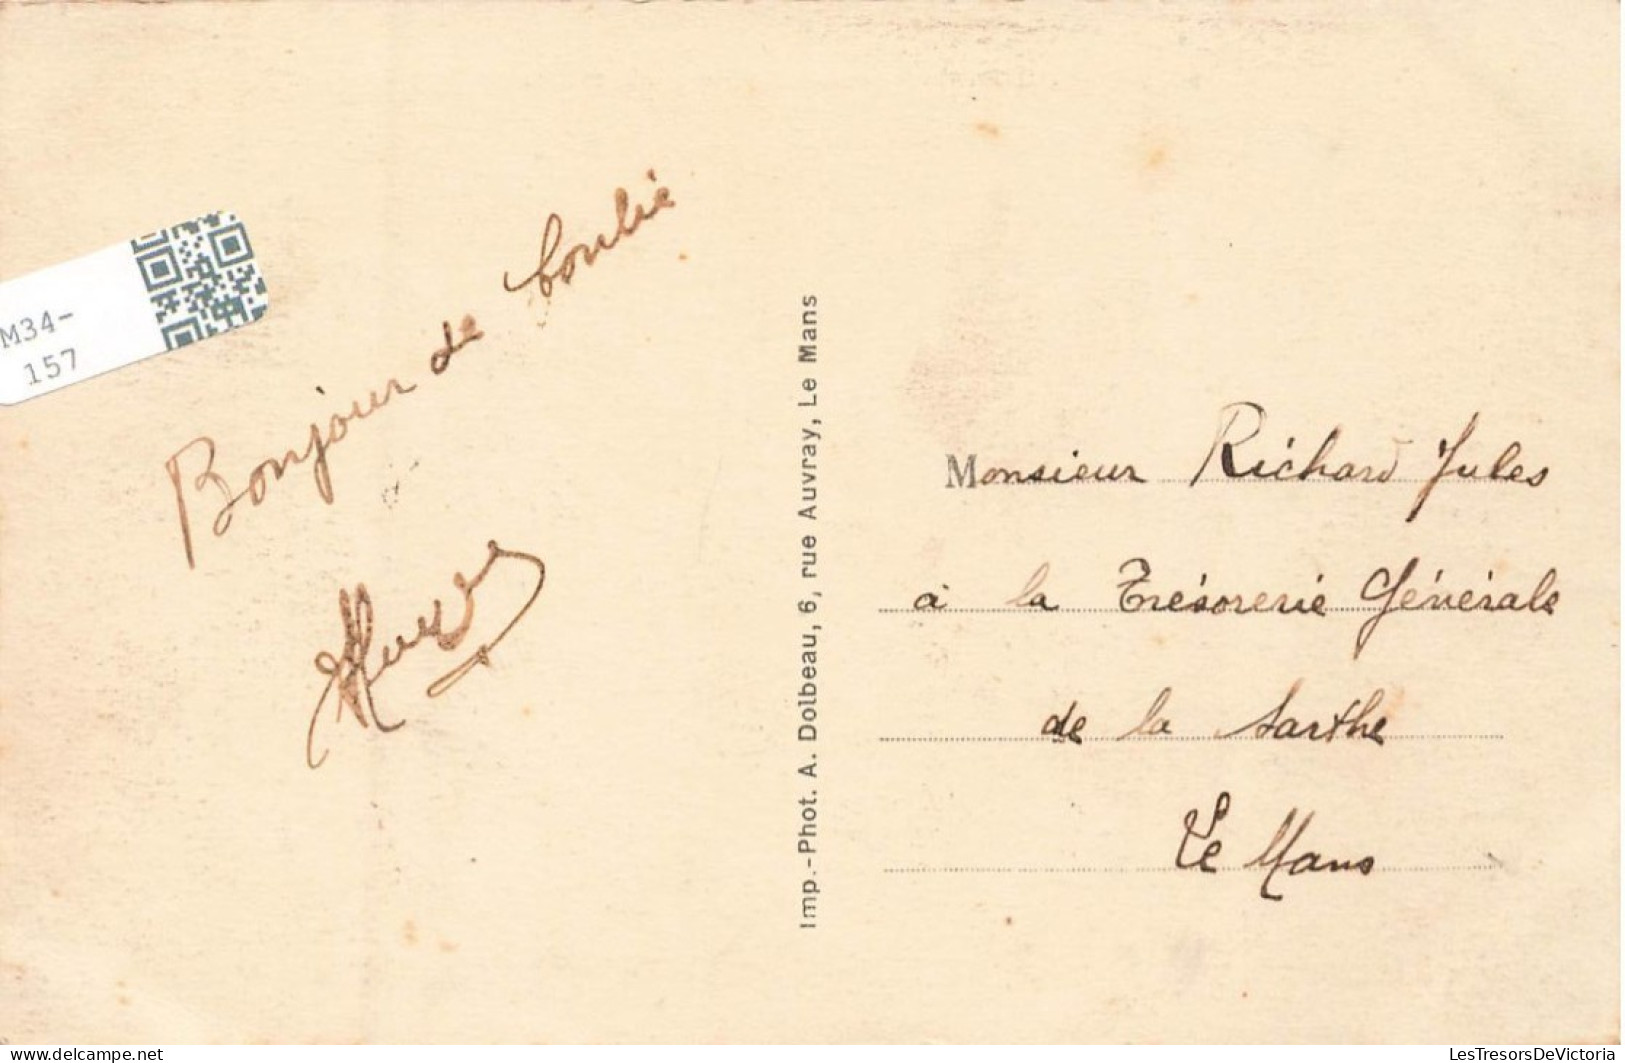 M34-
157
Bonjour de Conlie
Imp.-Phot. A. Dolbeau, 6, rue Auvray, Le Mans
Monsieur Richard Jules
à la Trésorerie Générale
de la Sarthe
Le Mans
delcampe.net
LesTresorsDeVictoria